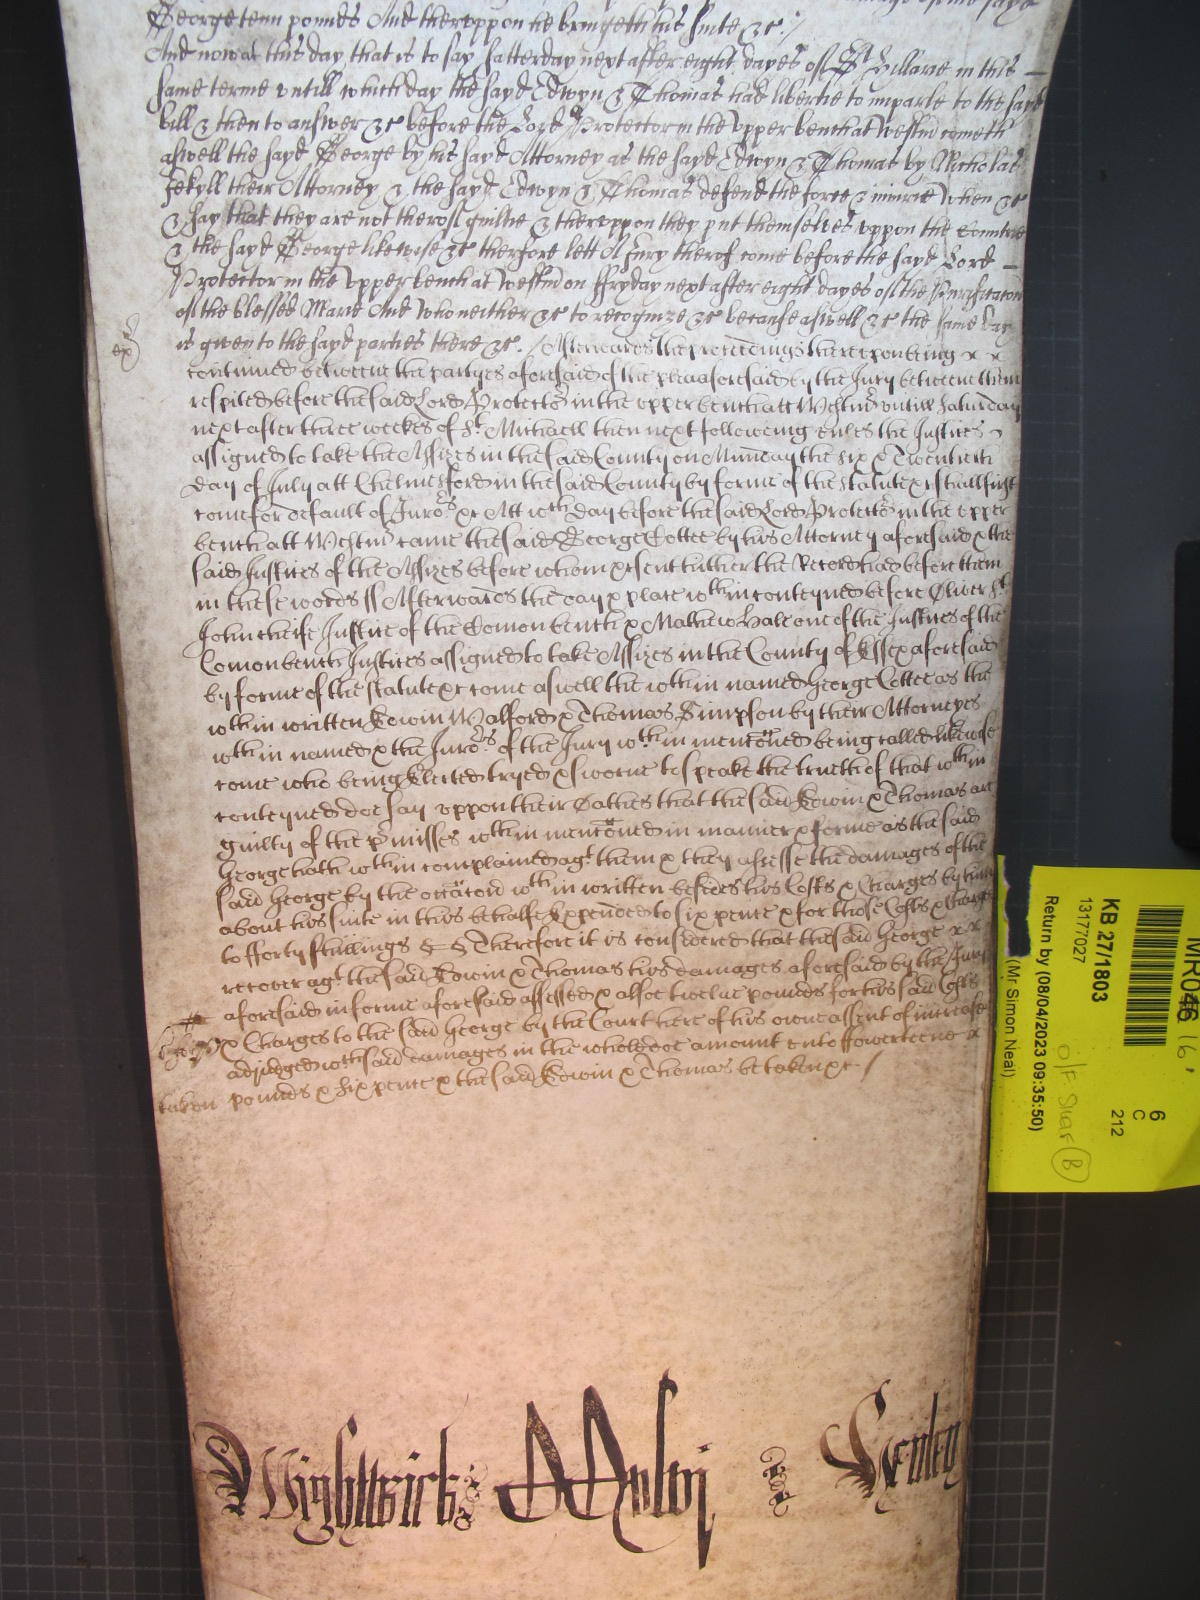 George tenn pounds And thereuppon he bringeth his suite &c ./
And now at this day, that is to say, Satterday next after eight dayes off St Hillarie in this
same terme untill which day the sayd Edwyn & Thomas had libertie to imparle to the sayd
bill & then to answer &c before the Lord Protector in the upper bench at Westm cometh
aswell the sayd George by his sayd Attorney as the sayd Edwyn & Thomas by Nicholas
Jekyll their Attorney & the sayd Edwyn & Thomas defend the force & iniurie When &c
& say that they are not theroff guiltie & thereuppon they put themselves uppon the Countrie
& the sayd George likewise &c therfore lett A Jury therof come before the sayd Lord
Protector in the upper bench at Westm on ffryday next after eight dayes off the Purificacon
off the blessed Marie And Who neither &c to recognize &c because aswell &c the same day
is given to the sayd parties there &c ./ Afterwards the proceedings thereupon being x x
ex
continued betweene the partyes aforesaid of the plea aforesaid by the Jury betweene them
respited before the said Lord Protector in the upper bench att Westmr untill Saturday
next after three weekes of St Michaell then next following unles the Justices
assigned to take the Assizes in the said County on Munday the six & Twentieth
day of July att Chelmesford in the said County by forme of the statute &c shall first
come for default of Jurors &c Att wch day before the said Lord Protector in the upper
bench att Westmr came the said George Cottee by his Attorney aforesaid & the
said Justices of the Assizes before whom &c sent hither the Record had before them
in these words ss Afterwards the day & place wthin conteyned before Oliver St
John cheife Justice of the Comon bench & Mathew Hale one of the Justices of the
Comon bench Justices assigned to take Assizes in the County of Essex aforesaid
by forme of the statute &c come aswell the wthin named George Cottee as the
wthin written Edwin Walford & Thomas Simpson by their Attorneyes
wthin named & the Jurors of the Jury wthin menconed being called likewise
come who being Elected tryed & sworne to speake the trueth of that wthin
conteyned doe say uppon their Oathes that the said Edwin & Thomas are
guilty of the pmisses wthin menconed in manner & forme as the said
George hath wthin complained agt them & they assesse the damages of the
said George by the occacon wthin written besides his Costs & Charges by him
about his suite in this behalfe Expended to six pence & for those Costs & Charges
to fforty shillings Therefore it is considered that the said George x x
recover agt the said Edwin & Thomas his damages aforesaid by the Jury
aforesaid in forme aforesaid assessed & alsoe twelve pounds for his said Costs
& Charges to the said George by the Court here of his owne assent of increase
adjudged wch said damages in the whole doe amount unto ffowerteene x
taken pounds & six pence & the said Edwin & Thomas be taken &c /
Wightwick Henley
KB 27/1803
13177027
Return by (08/04/2023 09:35:50)
(Mr Simon Neal)
6
C
212
B